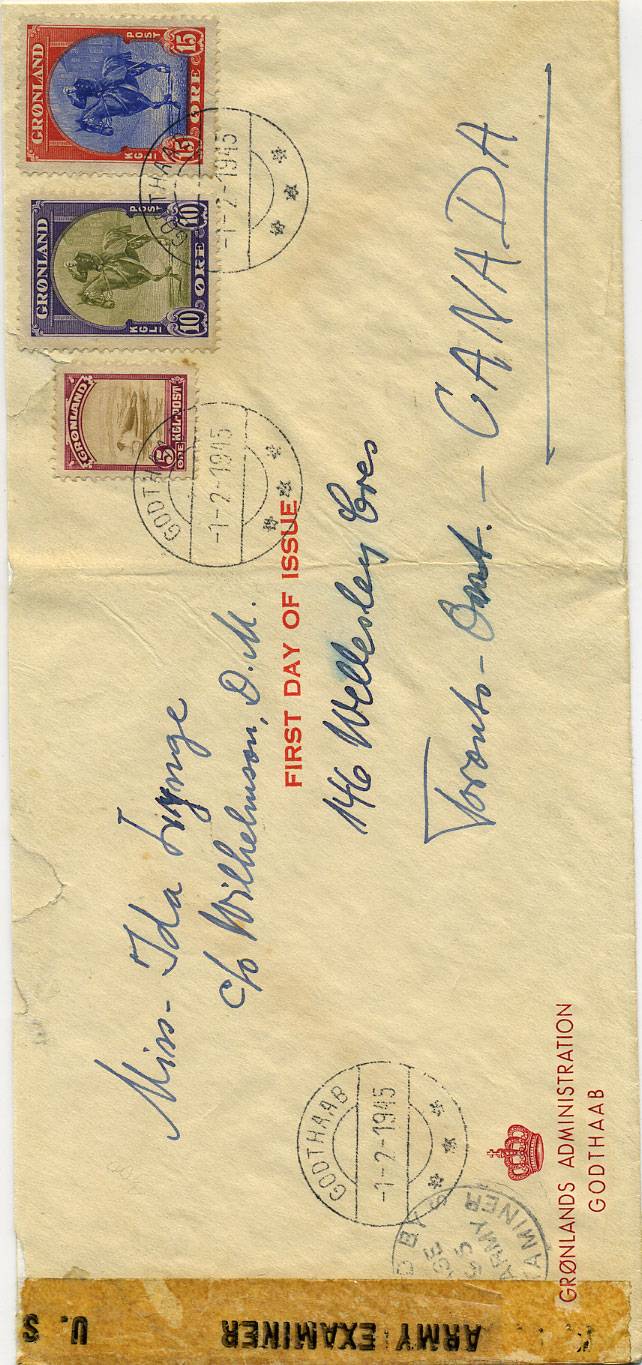 GRØNLAND
POST
KGL
15 15
ØRE
GRØNLAND
POST
KGL
10 10
ØRE
GRØNLAND
5
ØRE KGL. POST
GODTHAAB
-1-2-1945
GODTHAAB
-1-2-1945
Miss- Ida Lynge
c/o Wilhelmson, D.M.
FIRST DAY OF ISSUE
146 Wellesley Cres
Toronto- Ont. - CANADA
GODTHAAB
-1-2-1945
ARMY
AMINER
GRØNLANDS ADMINISTRATION
GODTHAAB
U. S
ARMY EXAMINER